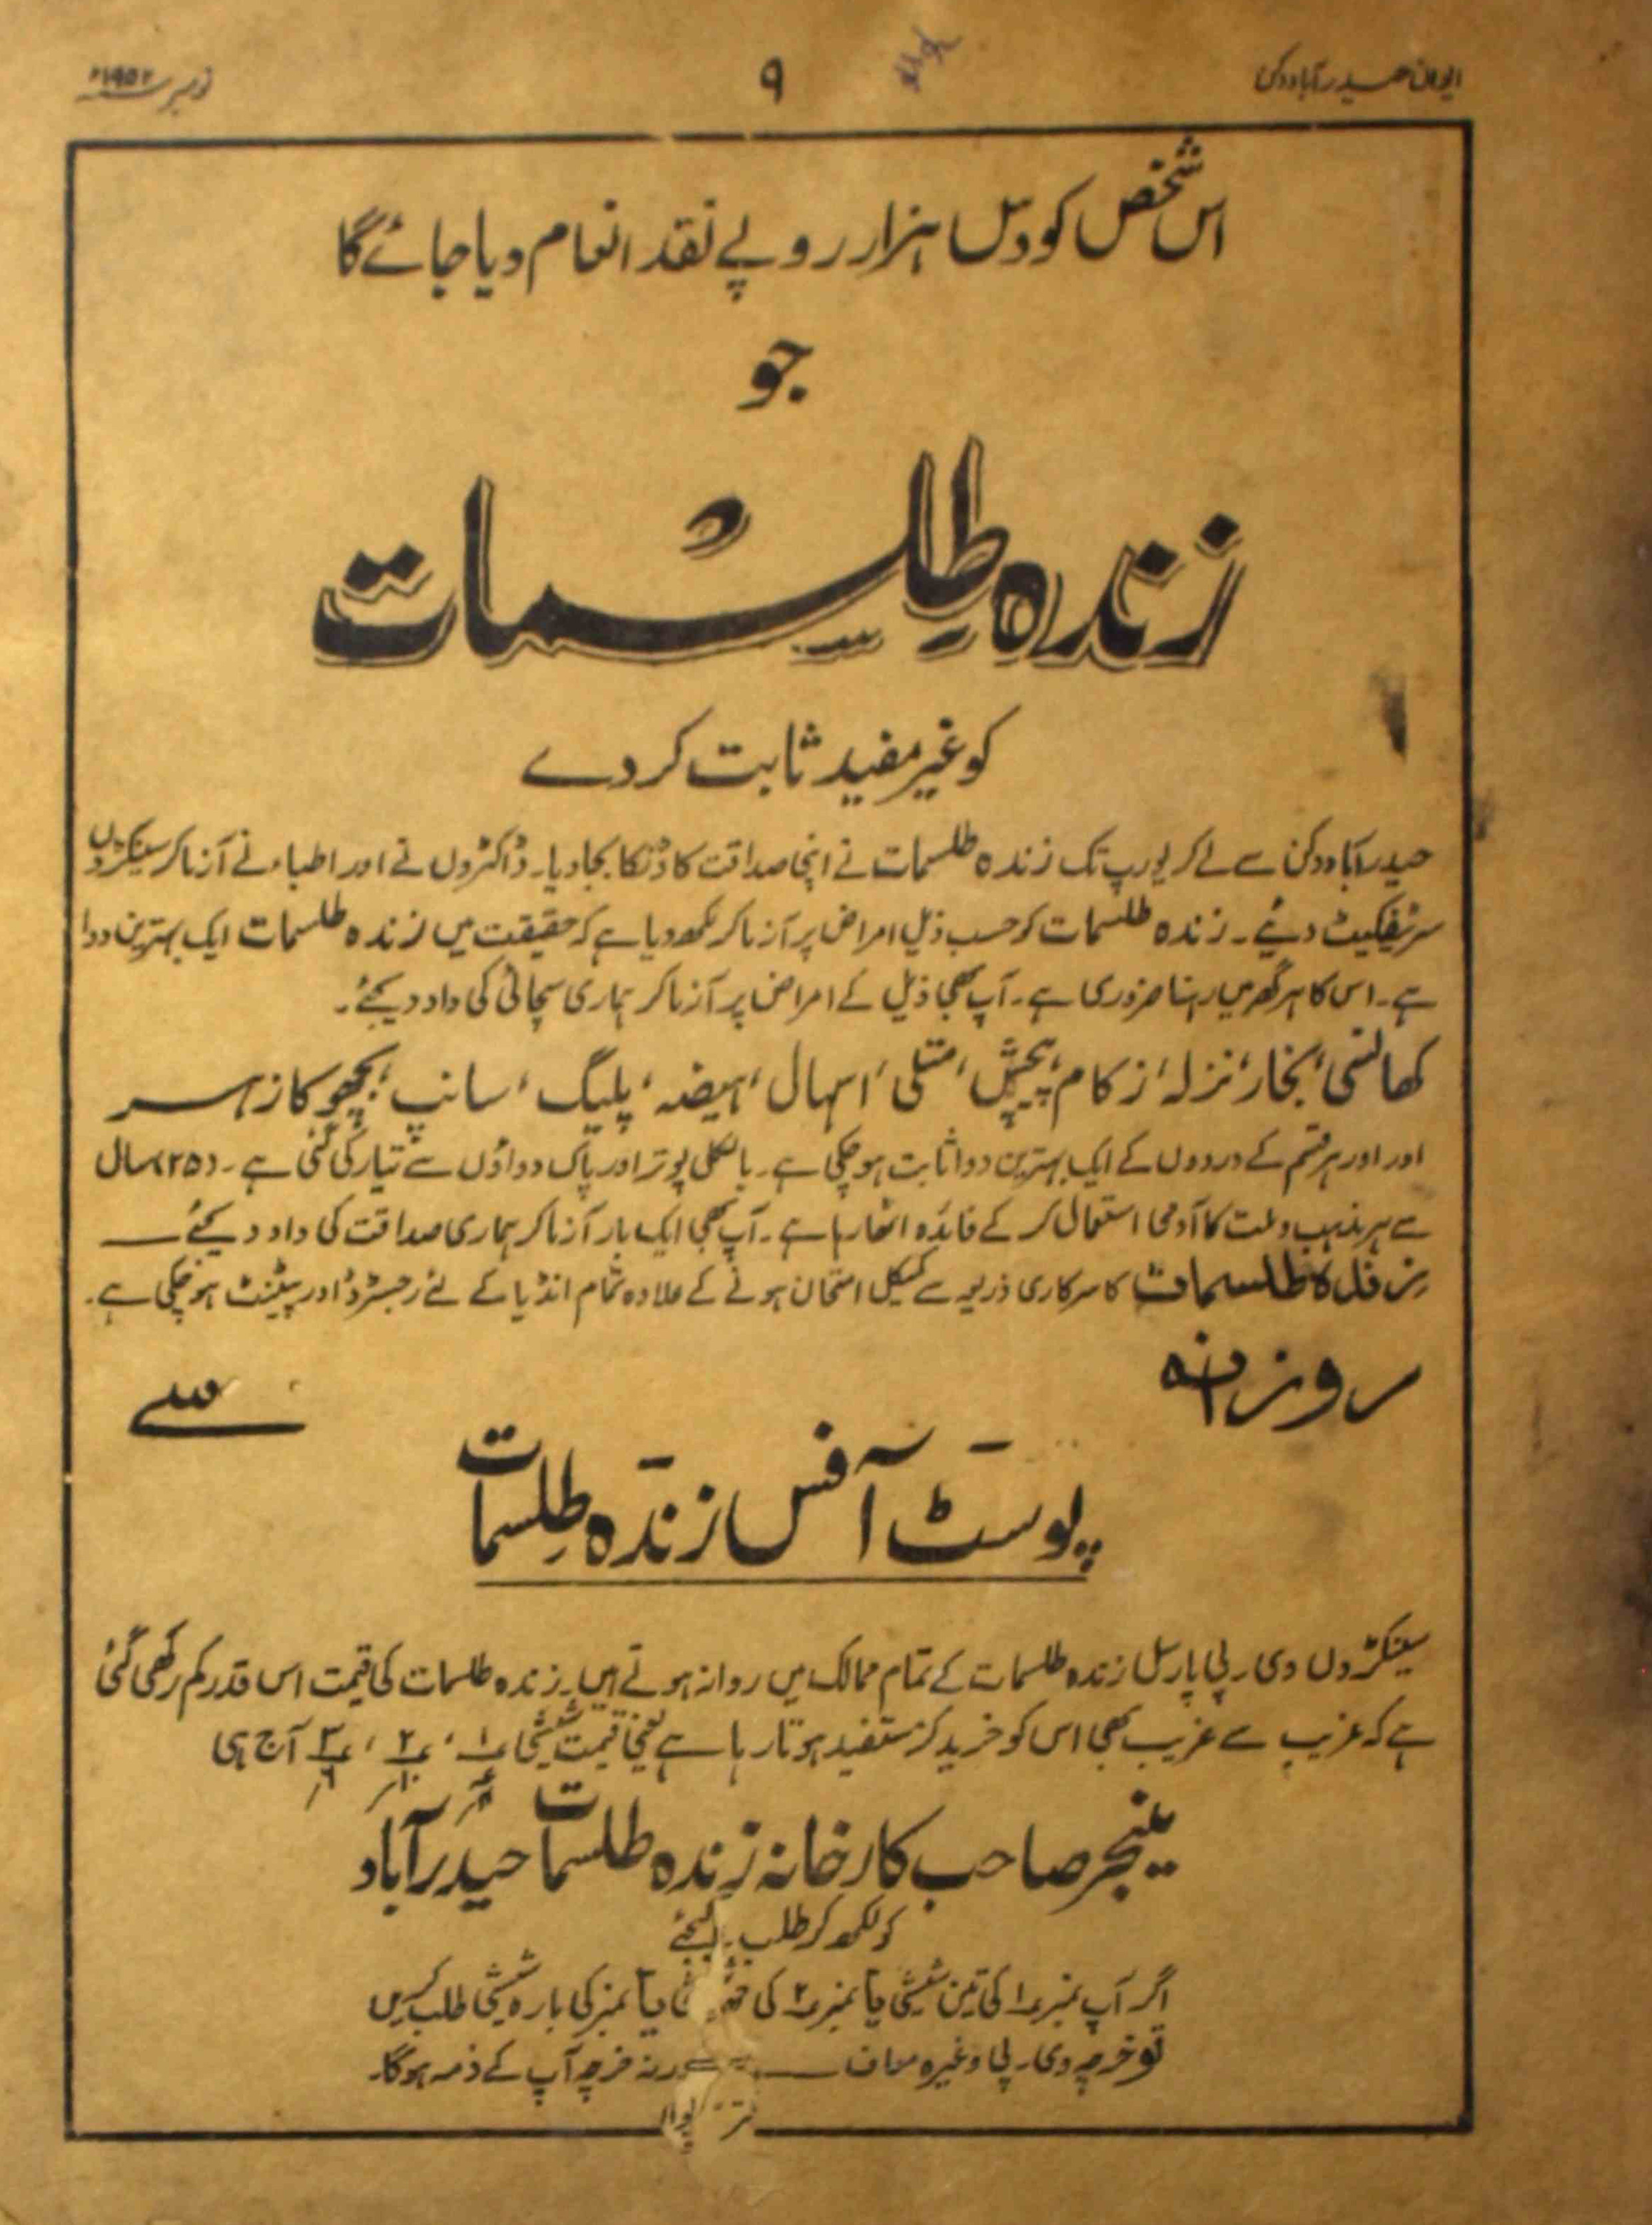 ایوان حیدرآباد دکن
۹
نومبر ۱۹۵۲ء
اس شخص کو دس ہزار روپے نقد انعام دیا جائے گا
جو
زندہ طلسمات
کو غیر مفید ثابت کردے
حیدرآباد دکن سے لے کر یورپ تک زندہ طلسمات نے اپنی صداقت کا ڈنکا بجا دیا۔ ڈاکٹروں نے اور اطباء نے آزما کر سینکڑوں
سرٹیفکیٹ دیئے۔ زندہ طلسمات کو حسب ذیل امراض پر آزما کر لکھ دیا ہے کہ حقیقت میں زندہ طلسمات ایک بہترین دوا
ہے۔ اس کا ہر گھر میں رہنا ضروری ہے۔ آپ بھی ذیل کے امراض پر آزما کر ہماری سچائی کی داد دیجئے۔
کھانسی، بخار، نزلہ، زکام، پیچش، متلی، اسہال، ہیضہ، پلیگ، سانپ، بچھو کا زہر
اور اور ہر قسم کے دردوں کے ایک بہترین دوا ثابت ہوچکی ہے۔ بالکل پوتر اور پاک دواؤں سے تیار کی گئی ہے۔ (۲۵) سال
سے ہر مذہب و ملت کا آدمی استعمال کر کے فائدہ اٹھا رہا ہے۔ آپ بھی ایک بار آزما کر ہماری صداقت کی داد دیجئے
زندہ طلسمات کا سرکاری ذریعہ سے کیمیکل امتحان ہونے کے علاوہ تمام انڈیا کے لئے رجسٹرڈ اور پیٹنٹ ہوچکی ہے۔
روزانہ
سے
پوسٹ آفس زندہ طلسمات
سینکڑوں وی۔پی پارسل زندہ طلسمات کے تمام ممالک میں روانہ ہوتے ہیں۔ زندہ طلسمات کی قیمت اس قدر کم رکھی گئی
ہے کہ غریب سے غریب بھی اس کو خرید کر مستفید ہوتا رہا ہے یعنی قیمت شیشی نمبر ۱، نمبر ۲، نمبر ۳ آج ہی
مینجر صاحب کارخانہ زندہ طلسمات حیدرآباد
کو لکھ کر طلب کیجئے
اگر آپ نمبر ۱ کی تین شیشی یا نمبر ۲ کی یا نمبر کی بارہ شیشی طلب کریں
تو خرچہ وی۔پی وغیرہ معاف ورنہ خرچہ آپ کے ذمہ ہوگا۔